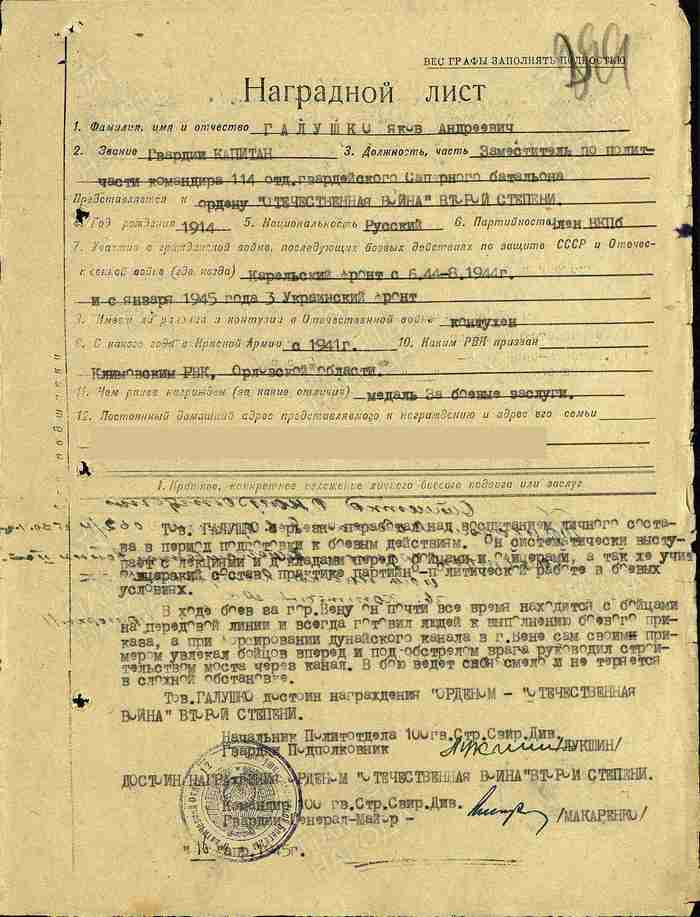 ВЕС ГРАФЫ ЗАПОЛНЯТЬ ПОЛНОСТЬЮ
Наградной лист
1. Фамилия, имя и отчество ГАЛУШКО Яков Андреевич
2. Звание Гвардии КАПИТАН 3. Должность, часть Заместитель по полит-
части командира 114 отд.гвардейского Саперного батальона
Представляется к ордену "ОТЕЧЕСТВЕННАЯ ВОЙНА" ВТОРОЙ СТЕПЕНИ.
4. Год рождения 1914 5. Национальность Русский 6. Партийность Член ВКПб
7. Участие в гражданской войне, последующих боевых действиях по защите СССР и Отечес-
твенной войне (где, когда) Карельский фронт с 6.44-8.1944г.
и с января 1945 года 3 Украинский фронт
8. Имеет ли ранения и контузии в Отечественной войне контужен
9. С какого года в Красной Армии с 1941г. 10. Каким РВК призван
Климовским РВК, Орловской области.
11. Чем ранее награжден (за какие отличия) медаль За боевые заслуги.
12. Постоянный домашний адрес представляемого к награждению и адрес его семьи
1. Краткое, конкретное изложение личного боевого подвига или заслуг
Тов. ГАЛУШКО серьезно поработал над воспитанием личного соста-
ва в период подготовки к боевым действиям. Он систематически высту-
пает с лекциями и докладами перед бойцами и офицерами, а так же учит
офицерский состав практике партийно-политической работе в боевых
условиях.
В ходе боев за гор.Вену он почти все время находится с бойцами
на передовой линии и всегда готовил людей к выполнению боевого при-
каза, а при форсировании дунайского канала в г.Вене сам своим при-
мером увлекал бойцов вперед и под обстрелом врага руководил строи-
тельством моста через канал. В бою ведет себя смело и не теряется
в сложной обстановке.
Тов.ГАЛУШКО достоин награждения "ОРДЕНОМ - "ОТЕЧЕСТВЕННАЯ
ВОЙНА" ВТОРОЙ СТЕПЕНИ.
Начальник Политотдела 100гв.Стр.Свир.Див.
Гвардии Подполковник /ЛУКШИН/
ДОСТОИН НАГРАЖДЕНИЯ ОРДЕНОМ "ОТЕЧЕСТВЕННАЯ ВОЙНА" ВТОРОЙ СТЕПЕНИ.
Командир 100 гв.Стр.Свир.Див.
Гвардии Генерал-Майор - /МАКАРЕНКО/